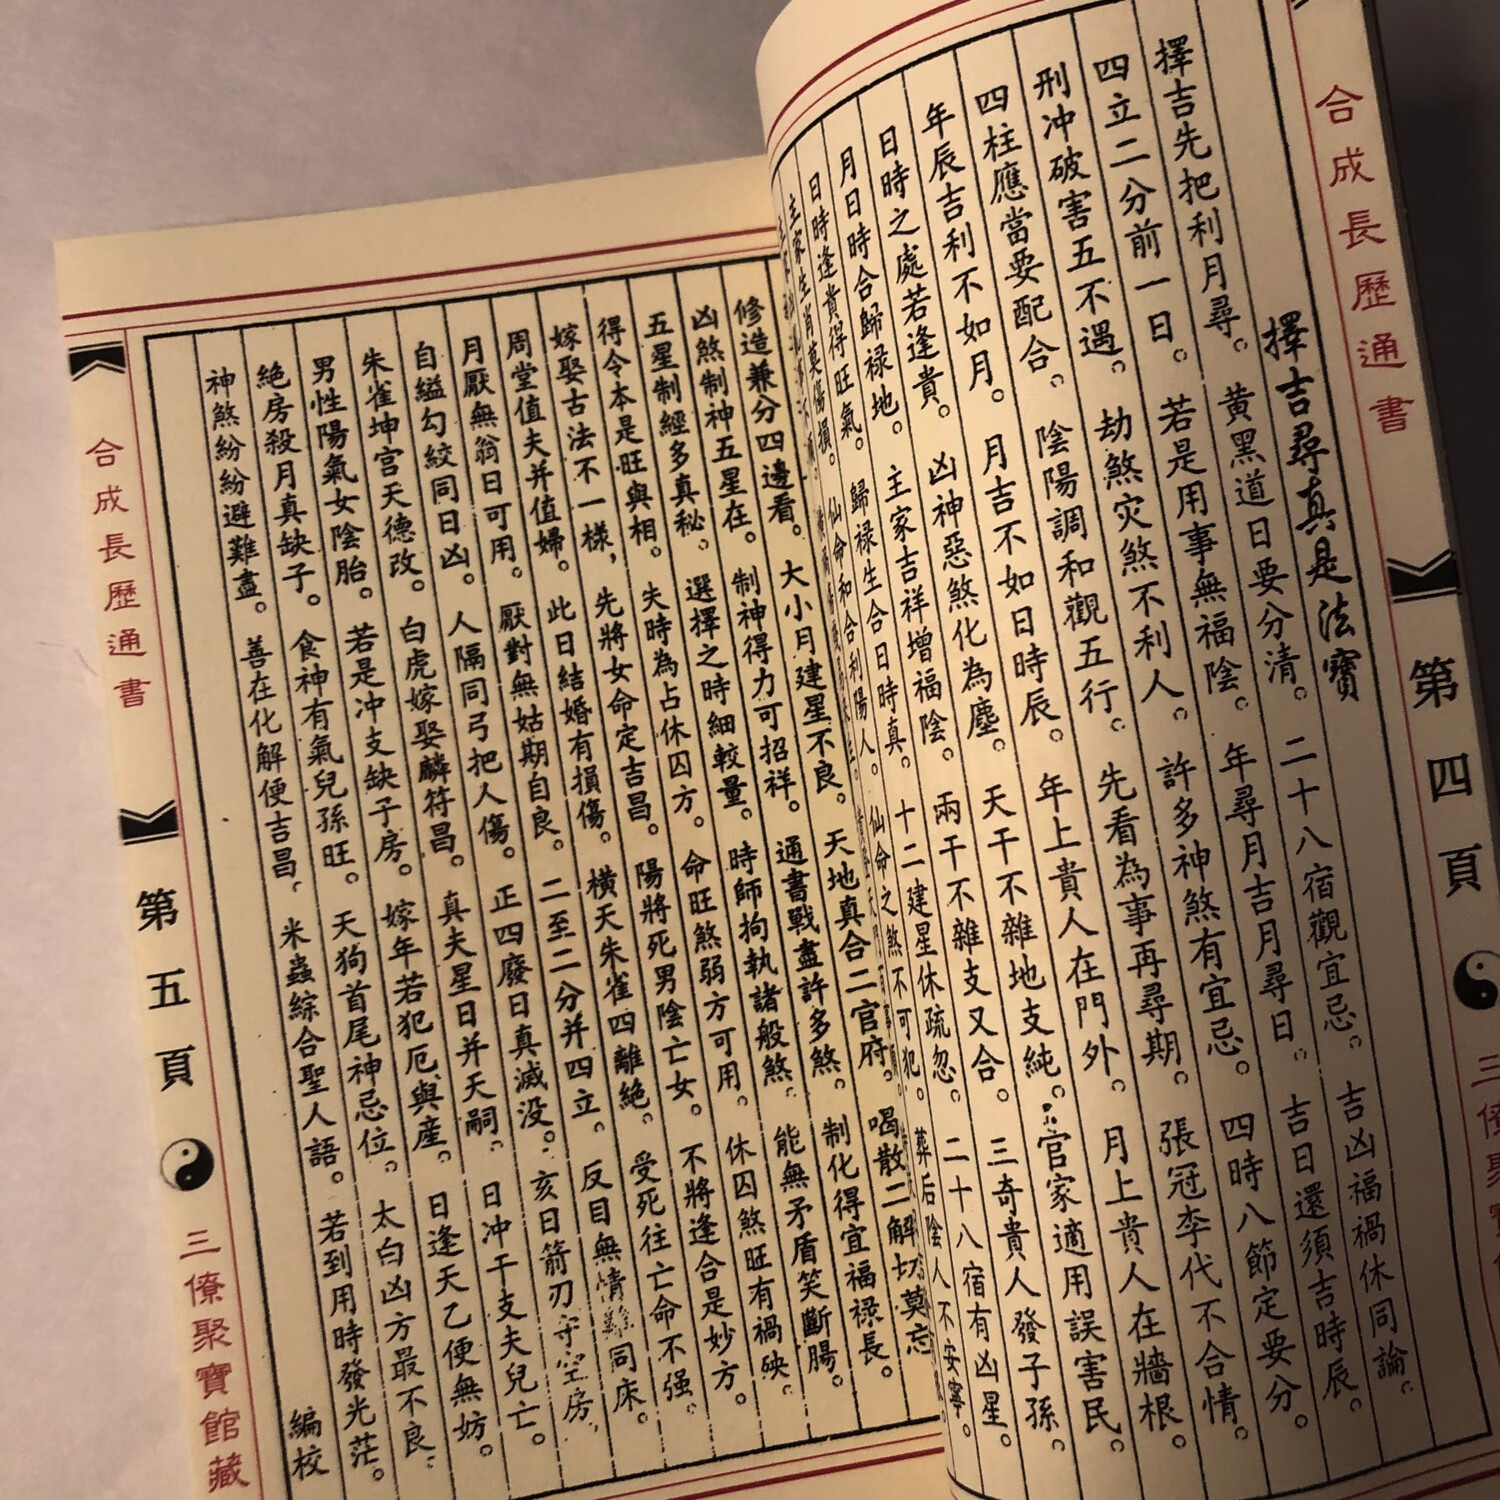 合成長歷通書
第四頁
擇吉尋真是法寶
擇吉先把利月尋。黃黑道日要分清。二十八宿觀宜忌。吉凶福禍休同論。
四立二分前一日。若是用事無福陰。年尋月吉月尋日。吉日還須吉時辰。
刑冲破害五不遇。劫煞灾煞不利人。許多神煞有宜忌。四時八節定要分。
四柱應當要配合。陰陽調和觀五行。先看為事再尋期。張冠李代不合情。
年辰吉利不如月。月吉不如日時辰。年上貴人在門外。月上貴人在牆根。
日時之處若逢貴。凶神惡煞化為塵。天干不雜地支純。官家適用誤害民。
月日時合歸禄地。主家吉祥增福陰。兩干不雜支又合。三奇貴人發子孫。
日時逢貴得旺氣。歸禄生合日時真。十二建星休疏忽。二十八宿有凶星。
主家生肖莫傷損。仙命和合利陽人。仙命之煞不可犯。葬后陰人不安寧。
修造兼分四邊看。大小月建星不良。天地真合二官府。喝散二解切莫忘
凶煞制神五星在。制神得力可招祥。通書戰盡許多煞。制化得宜福禄長。
五星制經多真秘。選擇之時細較量。時師拘執諸般煞。能無矛盾笑斷腸。
得令本是旺與相。失時為占休囚方。命旺煞弱方可用。休囚煞旺有禍殃。
嫁娶古法不一樣，先將女命定吉昌。陽將死男陰亡女。不將逢合是妙方。
周堂值夫并值婦。此日結婚有損傷。橫天朱雀四離絶。受死往亡命不强。
月厭無翁日可用。厭對無姑期自良。二至二分并四立。反目無情難同床。
自縊勾絞同日凶。人隔同弓把人傷。正四廢日真滅没。亥日箭刃守空房，
朱雀坤宫天德改。白虎嫁娶麟符昌。真夫星日并天嗣。日冲干支夫兒亡。
男性陽氣女陰胎。若是冲支缺子房。嫁年若犯厄與産。日逢天乙便無妨。
絶房殺月真缺子。食神有氣兒孫旺。天狗首尾神忌位。太白凶方最不良。
神煞紛紛避難盡。善在化解便吉昌。米蟲綜合聖人語。若到用時發光茫。
編校
合成長歷通書
第五頁
三僚聚寶館藏